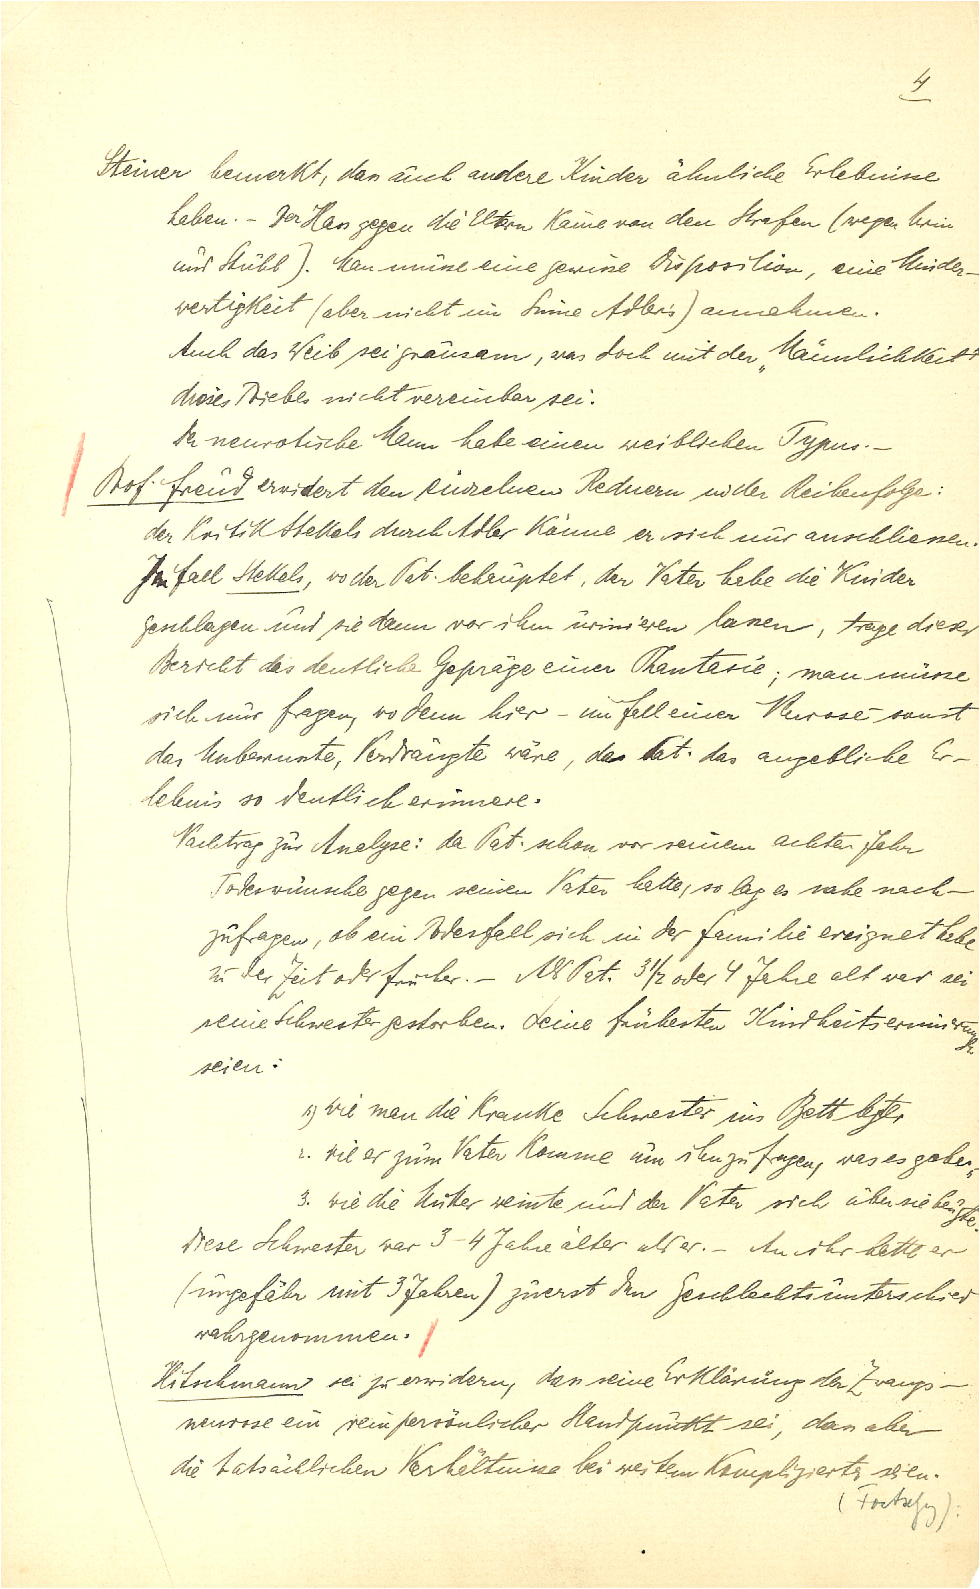 4
Steiner bemerkt, dass auch andere Kinder ähnliche Erlebnisse
haben. - Der Hass gegen die Eltern käme von den Strafen (wegen Urin
und Stuhl). Man müsse eine gewisse Disposition, eine Minder-
wertigkeit (aber nicht im Sinne Adlers) annehmen.
Auch das Weib sei grausam, was doch mit der „Männlichkeit"
dieses Triebes nicht vereinbar sei.
Der neurotische Mann habe einen weiblichen Typus. -
Prof. Freud erwidert den einzelnen Rednern in der Reihenfolge:
der Kritik Stekels durch Adler könne er sich nur anschliessen.
Im Fall Stekels, wo der Pat. behauptet, der Vater habe die Kinder
geschlagen und sie dann vor ihm urinieren lassen, trage dieser
Bericht das deutliche Gepräge einer Phantasie; man müsse
sich nur fragen, wo denn hier - im Fall einer Neurose - sonst
das Unbewusste, Verdrängte wäre, da Pat. das angebliche Er-
lebnis so deutlich erinnere.
Nachtrag zur Analyse: da Pat. schon vor seinem achten Jahr
Todeswünsche gegen seinen Vater hatte, so lag es nahe nach-
zufragen, ob ein Todesfall sich in der Familie ereignet habe
zu der Zeit oder früher. - Als Pat. 3 1/2 oder 4 Jahre alt war sei
seine Schwester gestorben. Seine frühesten Kindheitserinnerungen
seien:
1) wie man die kranke Schwester ins Bett legte,
2. wie er zum Vater komme um ihn zu fragen, was es gebe,
3. wie die Mutter weinte und der Vater sich über sie beugte.
Diese Schwester war 3-4 Jahre älter als er. - An ihr hatte er
(ungefähr mit 3 Jahren) zuerst den Geschlechtsunterschied
wahrgenommen.
Hitschmann sei zu erwidern, dass seine Erklärung der Zwangs-
neurose ein rein persönlicher Standpunkt sei, dass aber
die tatsächlichen Verhältnisse bei weitem komplizierter seien.
(Fortsetzg):